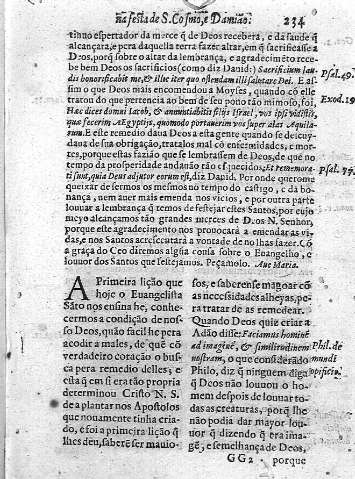 na festa de S. Cosmo, e Damiaõ. 234
tinuo espertador da merce q̃ de Deos recebera, e da saude q̃
alcançara, e pera daquella terra fazer altar, em q̃ sacrificasse a
Deos, porq̃ sobre o altar da lembrança, e agradecimẽto rece-
be bem Deos os sacrificios (como diz Dauid:) Sacrificium lau-
dis honorificabit me, & illic iter quo ostendam illi salutare Dei. E as- Psal. 49.
sim o que Deos mais encomendou a Moyses, quando cõ elle
tratou do que pertencia ao bem de seu pouo tão mimoso, foi, Exod. 19
Hæc dices domui Iacob, & annuntiabis filijs Israel, vos ipsi vidistis,
quæ fecerim Ægyptijs, quomodo portauerim vos super alas Aquila-
rum. E este remedio daua Deos a esta gente quando se descuy-
daua de sua obrigação, tratalos mal cõ enfermidades, e mor-
tes, porque estas fazião que se lembrassem de Deos, de quẽ no
tempo da prosperidade andauão tão esquecidos, Et rememora-
ti sunt, quia Deus adjutor eorum est, diz Dauid. Por onde que rome Psal. 77.
queixar de sermos os mesmos no tempo do castigo, e da bo-
nança, nem auer mais emenda nos vicios, e por outra parte
louuar a lembrança q̃ temos de festejar estes Santos, por cujo
meyo alcançamos tão grandes merces de Deos N. Senhor,
porque este agradecimento nos prouocará a emendar as vi-
das, e nos Santos acrescẽtará a vontade de nolhas fazer. Cõ
a graça do Ceo diremos algũa cousa sobre o Euangelho, e
louuor dos Santos que festejamos. Peçamolo. Aue Maria.
A Primeira lição que
hoje o Euangelista
Sãto nos ensina he, conhe-
cermos a condição de nos-
so Deos, quão facil he pera
acodir a males, de quẽ cõ
verdadeiro coração o bus-
ca pera remedio delles, e
esta q̃ em si era tão propria
determinou Cristo N. S.
de a plantar nos Apostolos
que nouamente tinha cria-
do, e foi a primeira lição q̃
lhes deu, saberẽ ser mauio-
sos, e saberense magoar cõ
as necessidades alheyas, pe-
ra tratar de as remedear.
Quando Deos quiz criar a
Adão disse: Faciamus hominẽ
ad imaginẽ, & similitudinem Phil. de
nostram, o que considerado mundi
Philo, diz q̃ ninguem diga opificio.
q̃ Deos não louuou o ho-
mem despois de louuar to-
das as creaturas, porq̃ lhe
não podia dar mayor lou-
uor q̃ dizendo q̃ era ima-
gẽ, e semelhança de Deos,
GG2 porque